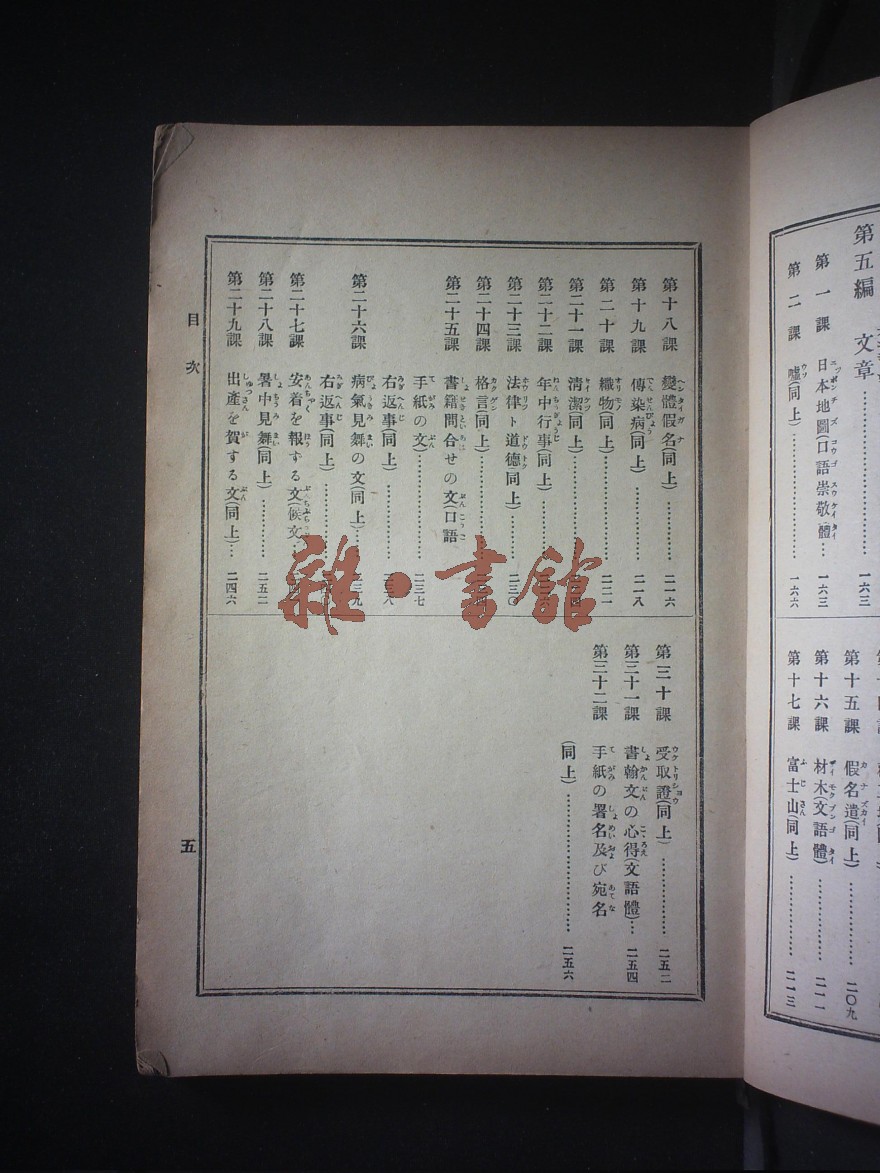 第五編 文章……………一六三
第一課 日本地圖(口語崇敬體…一六三
第二課 噓(同上)……………一六六
第十五課 假名遣(同上)……………二〇九
第十六課 材木(文語體)……………二一一
第十七課 富士山(同上)……………二一三
第十八課 變體假名(同上)……………二一六
第十九課 傳染病(同上)……………二一八
第二十課 織物(同上)……………二二一
第二十一課 淸潔(同上)……………
第二十二課 年中行事(同上)……………
第二十三課 法律ト道德同上)……………二三〇
第二十四課 格言(同上)……………
第二十五課 書籍問合せの文(口語
手紙の文)……………二三七
右返事(同上)……………二三八
第二十六課 病氣見舞の文(同上)……………二三九
右返事(同上)……………
第二十七課 安着を報ずる文(候文…
第二十八課 暑中見舞(同上)……………二五二
第二十九課 出產を賀する文(同上)…二四六
第三十課 受取證(同上)……………二五二
第三十一課 書翰文の心得(文語體)…二五四
第三十二課 手紙の署名及び宛名
(同上)……………二五六
目次
五
雜·書館